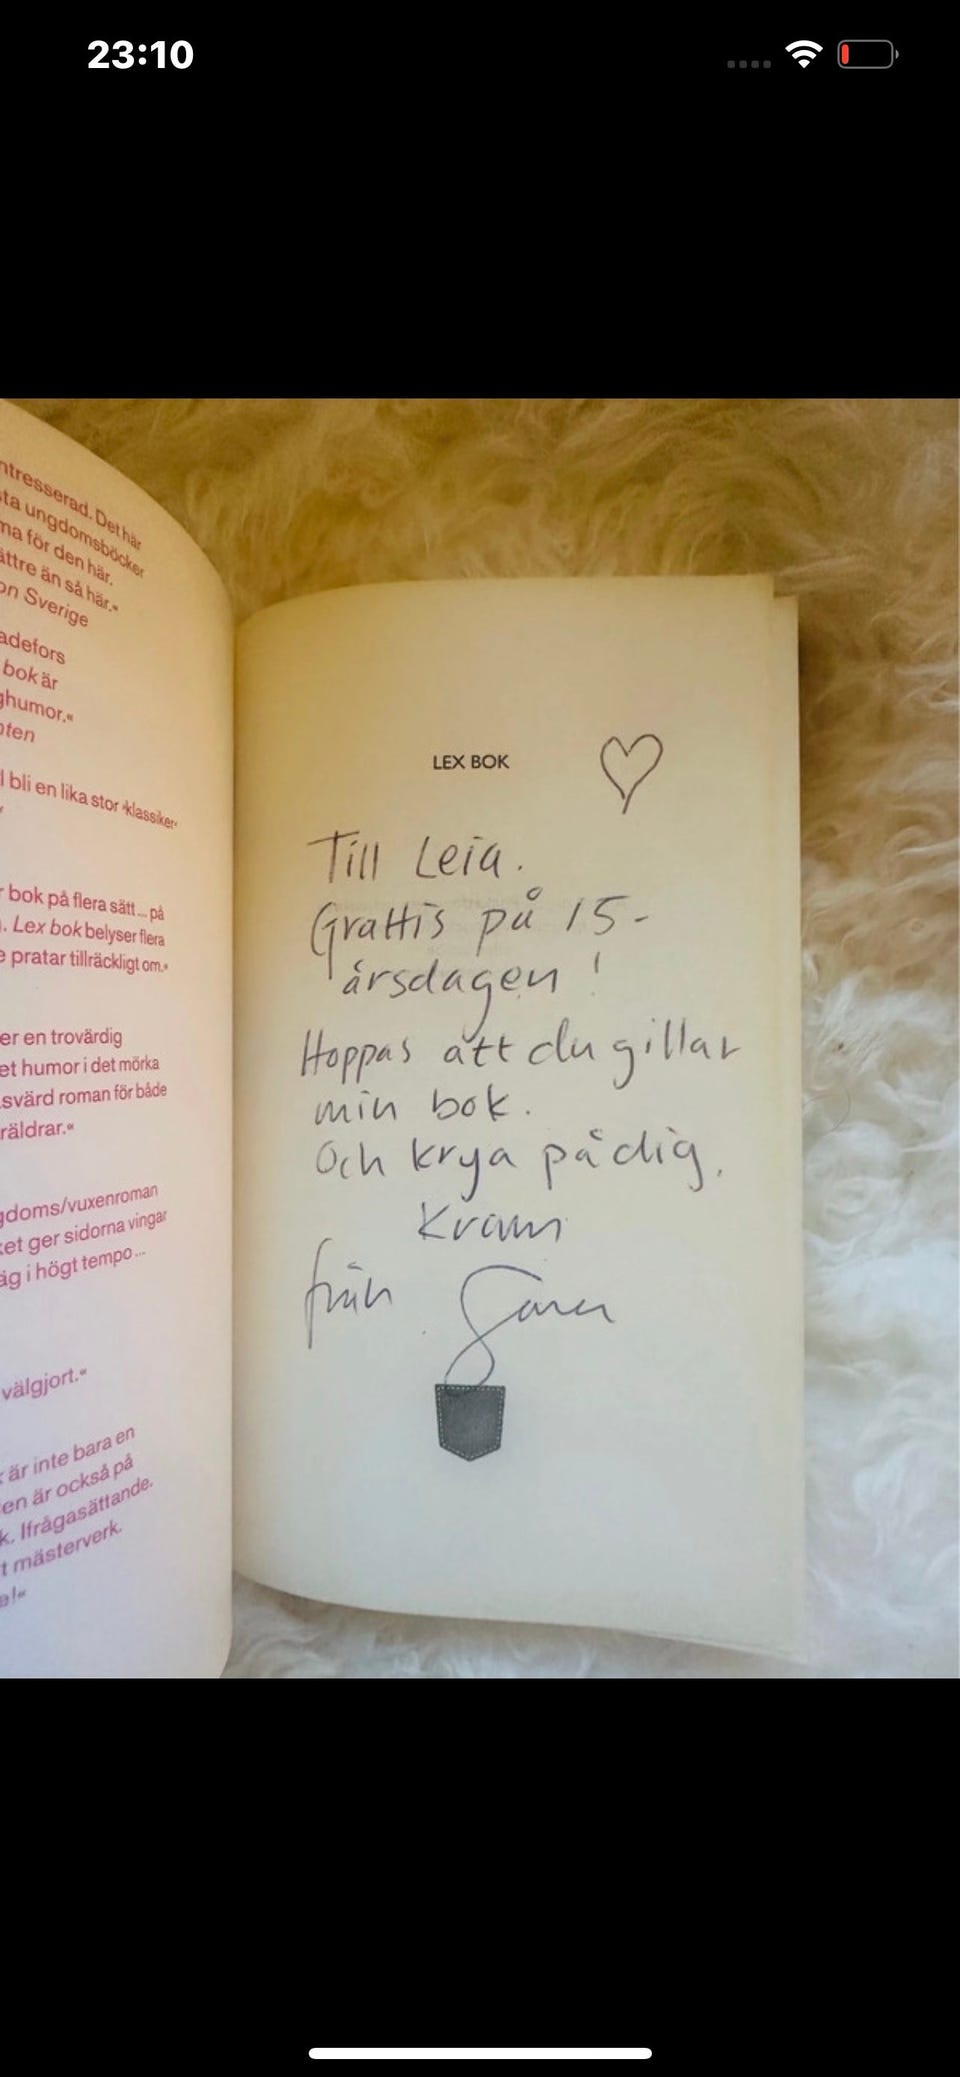 23:10
ntresserad. Det här
sta ungdomsböcker
ma för den här.
ättre än så här.«
on Sverige
adefors
bok är
ghumor.«
oten
l bli en lika stor ›klassiker‹
r bok på flera sätt ... på
. Lex bok belyser flera
e pratar tillräckligt om.«
er en trovärdig
et humor i det mörka
svärd roman för både
räldrar.«
gdoms/vuxenroman
ket ger sidorna vingar
äg i högt tempo ...
välgjort.«
k är inte bara en
en är också på
k. Ifrågasättande.
t mästerverk.
e!«
LEX BOK
Till Leia.
Grattis på 15-
årsdagen!
Hoppas att du gillar
min bok.
Och krya på dig.
Kram
från Sara